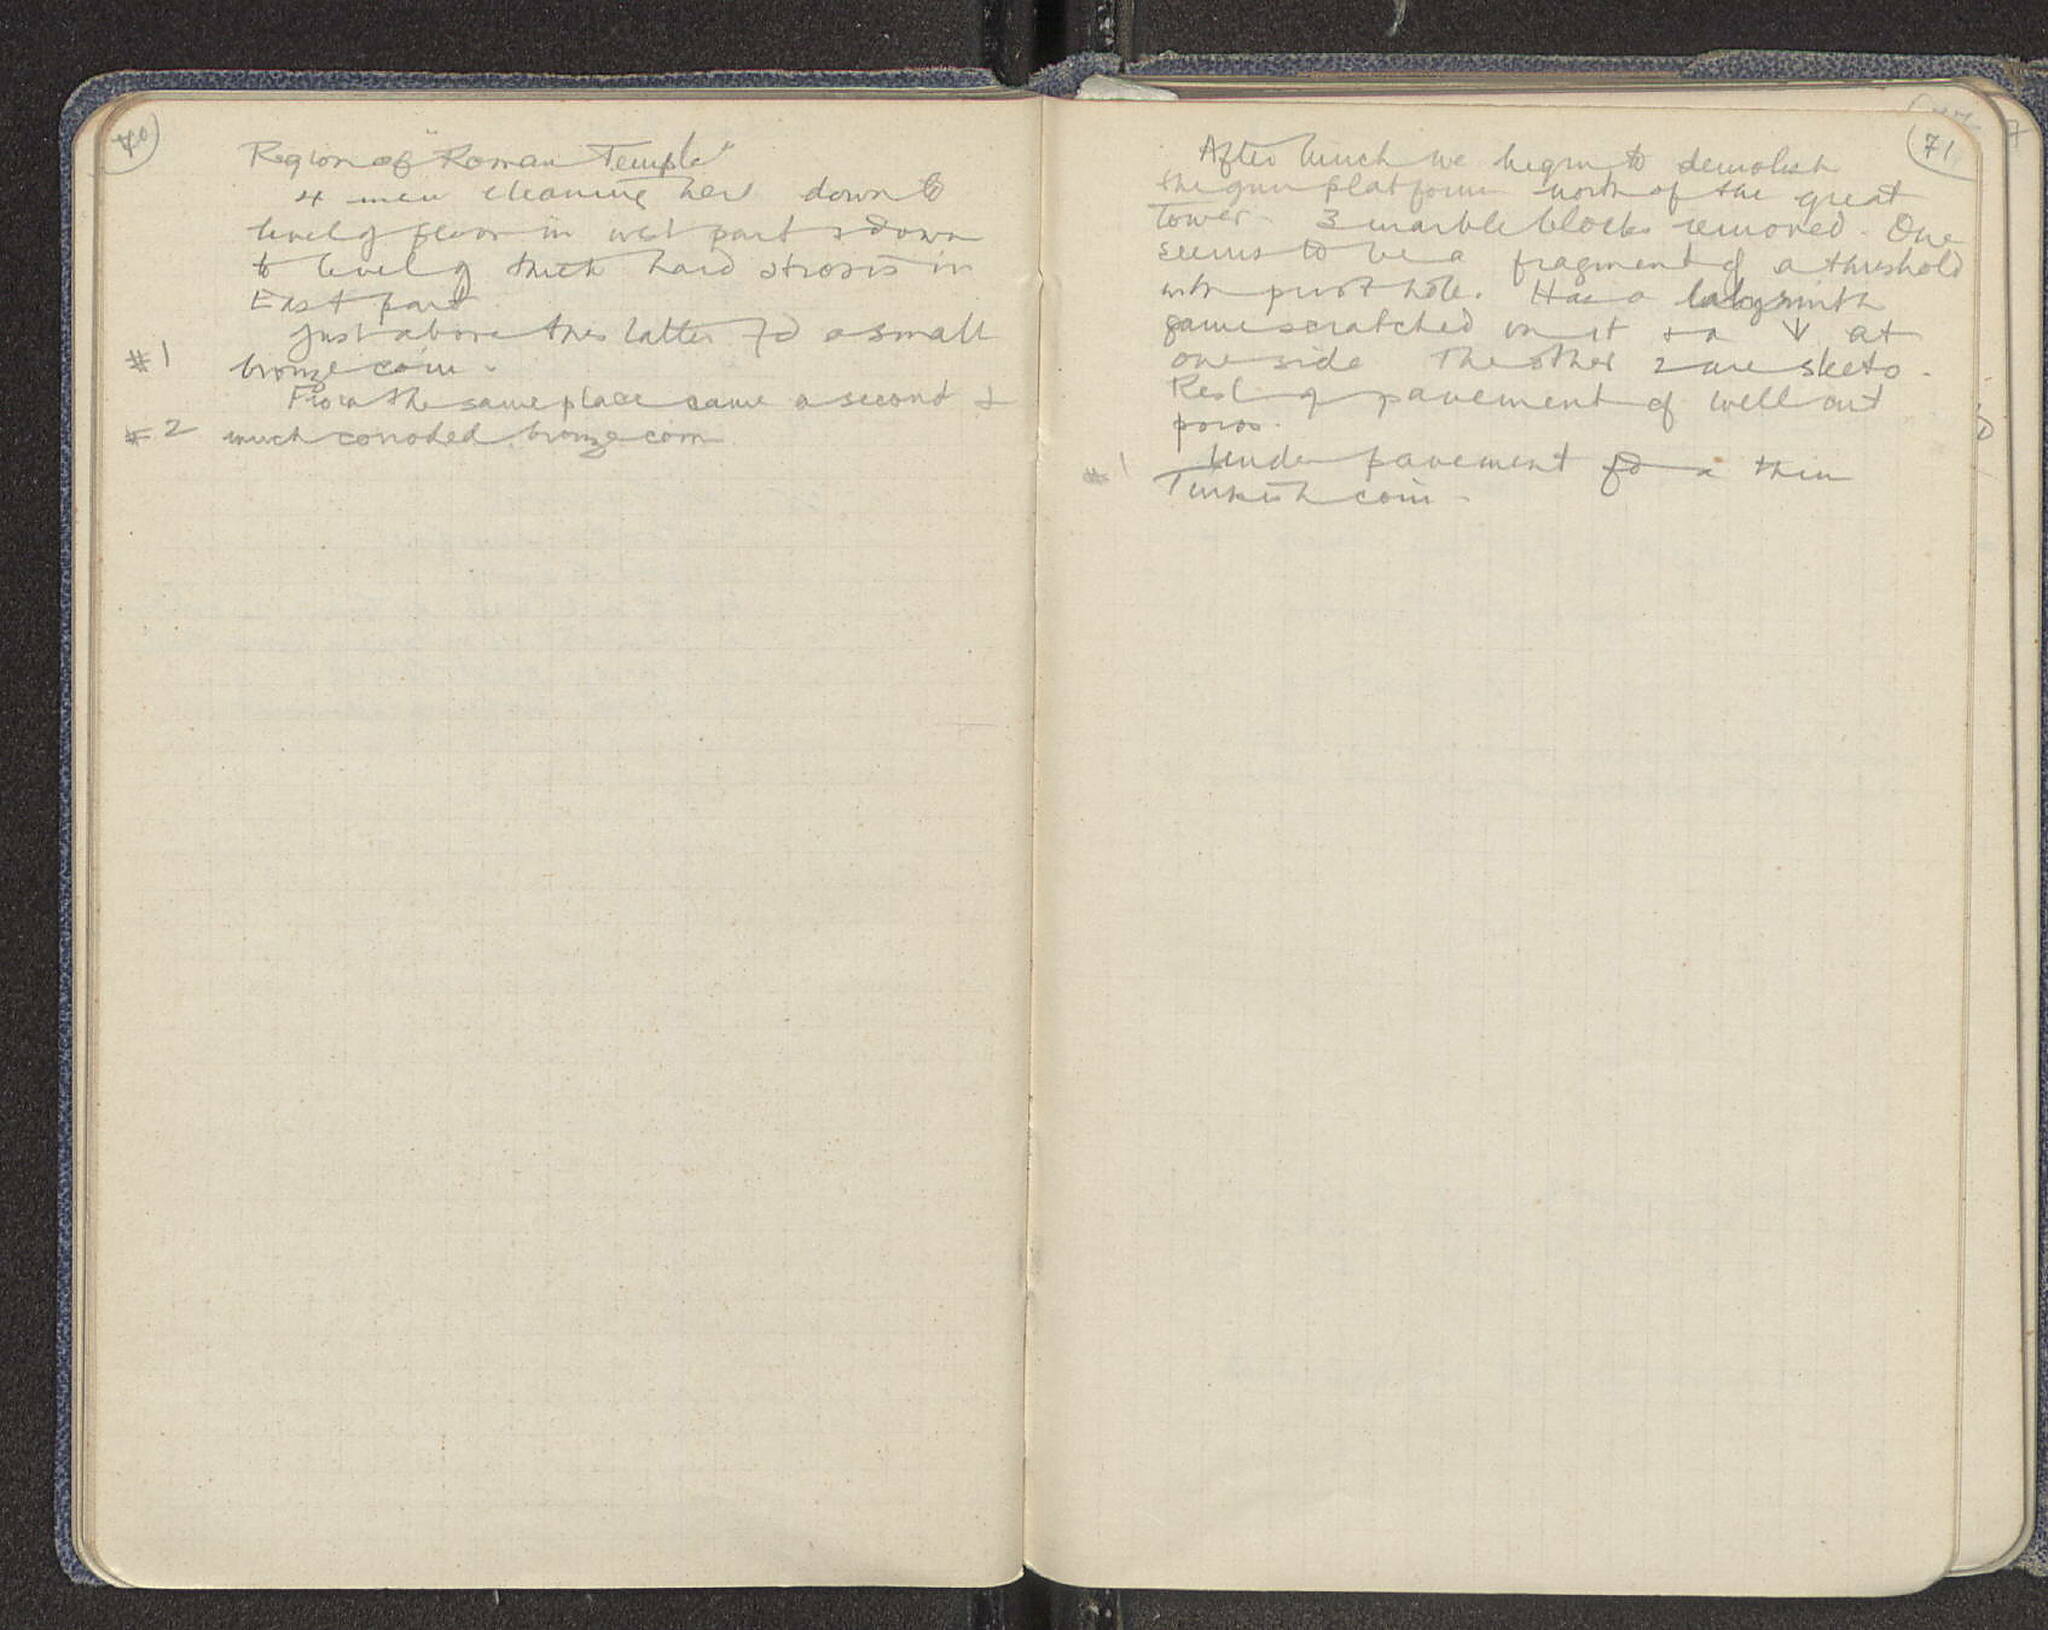 70
Region of "Roman Temple"
4 men cleaning here down to
level of floor in west part & down
to level of thick hard stroses in
East part
Just above this latter fd a small
#1 bronze coin.
From the same place came a second &
#2 much corroded bronze coin
71
After lunch we begin to demolish
the gun platform north of the great
Tower. 3 marble blocks removed. One
seems to be a fragment of a threshold
with pivot hole. Has a labyrinth
game scratched on it & a ↓ at
one side The other 2 are
Rest of pavement of well cut
poros.
Under pavement fd a thin
#1 Turkish coin.